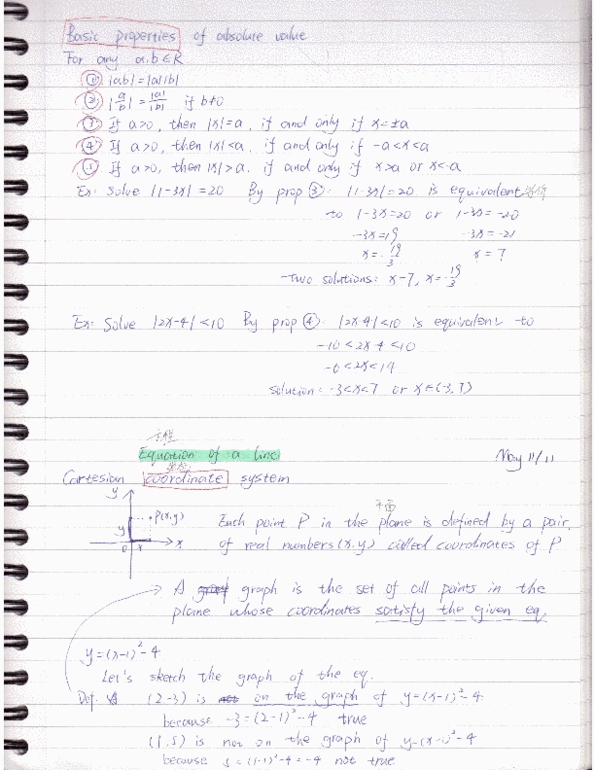 Basic properties of absolute value
For any a.b∈R
① |ab|=|a||b|
② |a/b| = |a|/|b| if b≠0
③ If a>0, then |x|=a. if and only if x=±a
④ If a>0, then |x|<a. if and only if -a<x<a
⑤ If a>0, then |x|>a. if and only if x>a or x<-a
Ex: Solve |1-3x|=20 By prop ③: |1-3x|=20 is equivalent
to 1-3x=20 or 1-3x=-20
-3x=19 -3x=-21
x=-19/3 x=7
Two solutions: x=7, x=-19/3
Ex: Solve |2x-4|<10 By prop ④: |2x-4|<10 is equivalent to
-10<2x-4<10
-6<2x<14
solution: -3<x<7 or x∈(-3,7)
方程
Equation of a line May 11/11
坐标
Cartesian coordinate system
y
P(x,y)
y
0 x x
平面
Each point P in the plane is defined by a pair,
of real numbers (x.y) called coordinates of P
A graph is the set of all points in the
plane whose coordinates satisfy the given eq.
y=(x-1)²-4
Let's sketch the graph of the eq.
Def. (2,-3) is on the graph of y=(x-1)²-4
because -3=(2-1)²-4 true
(1,5) is not on the graph of y=(x-1)²-4
because 5=(1-1)²-4=-4 not true